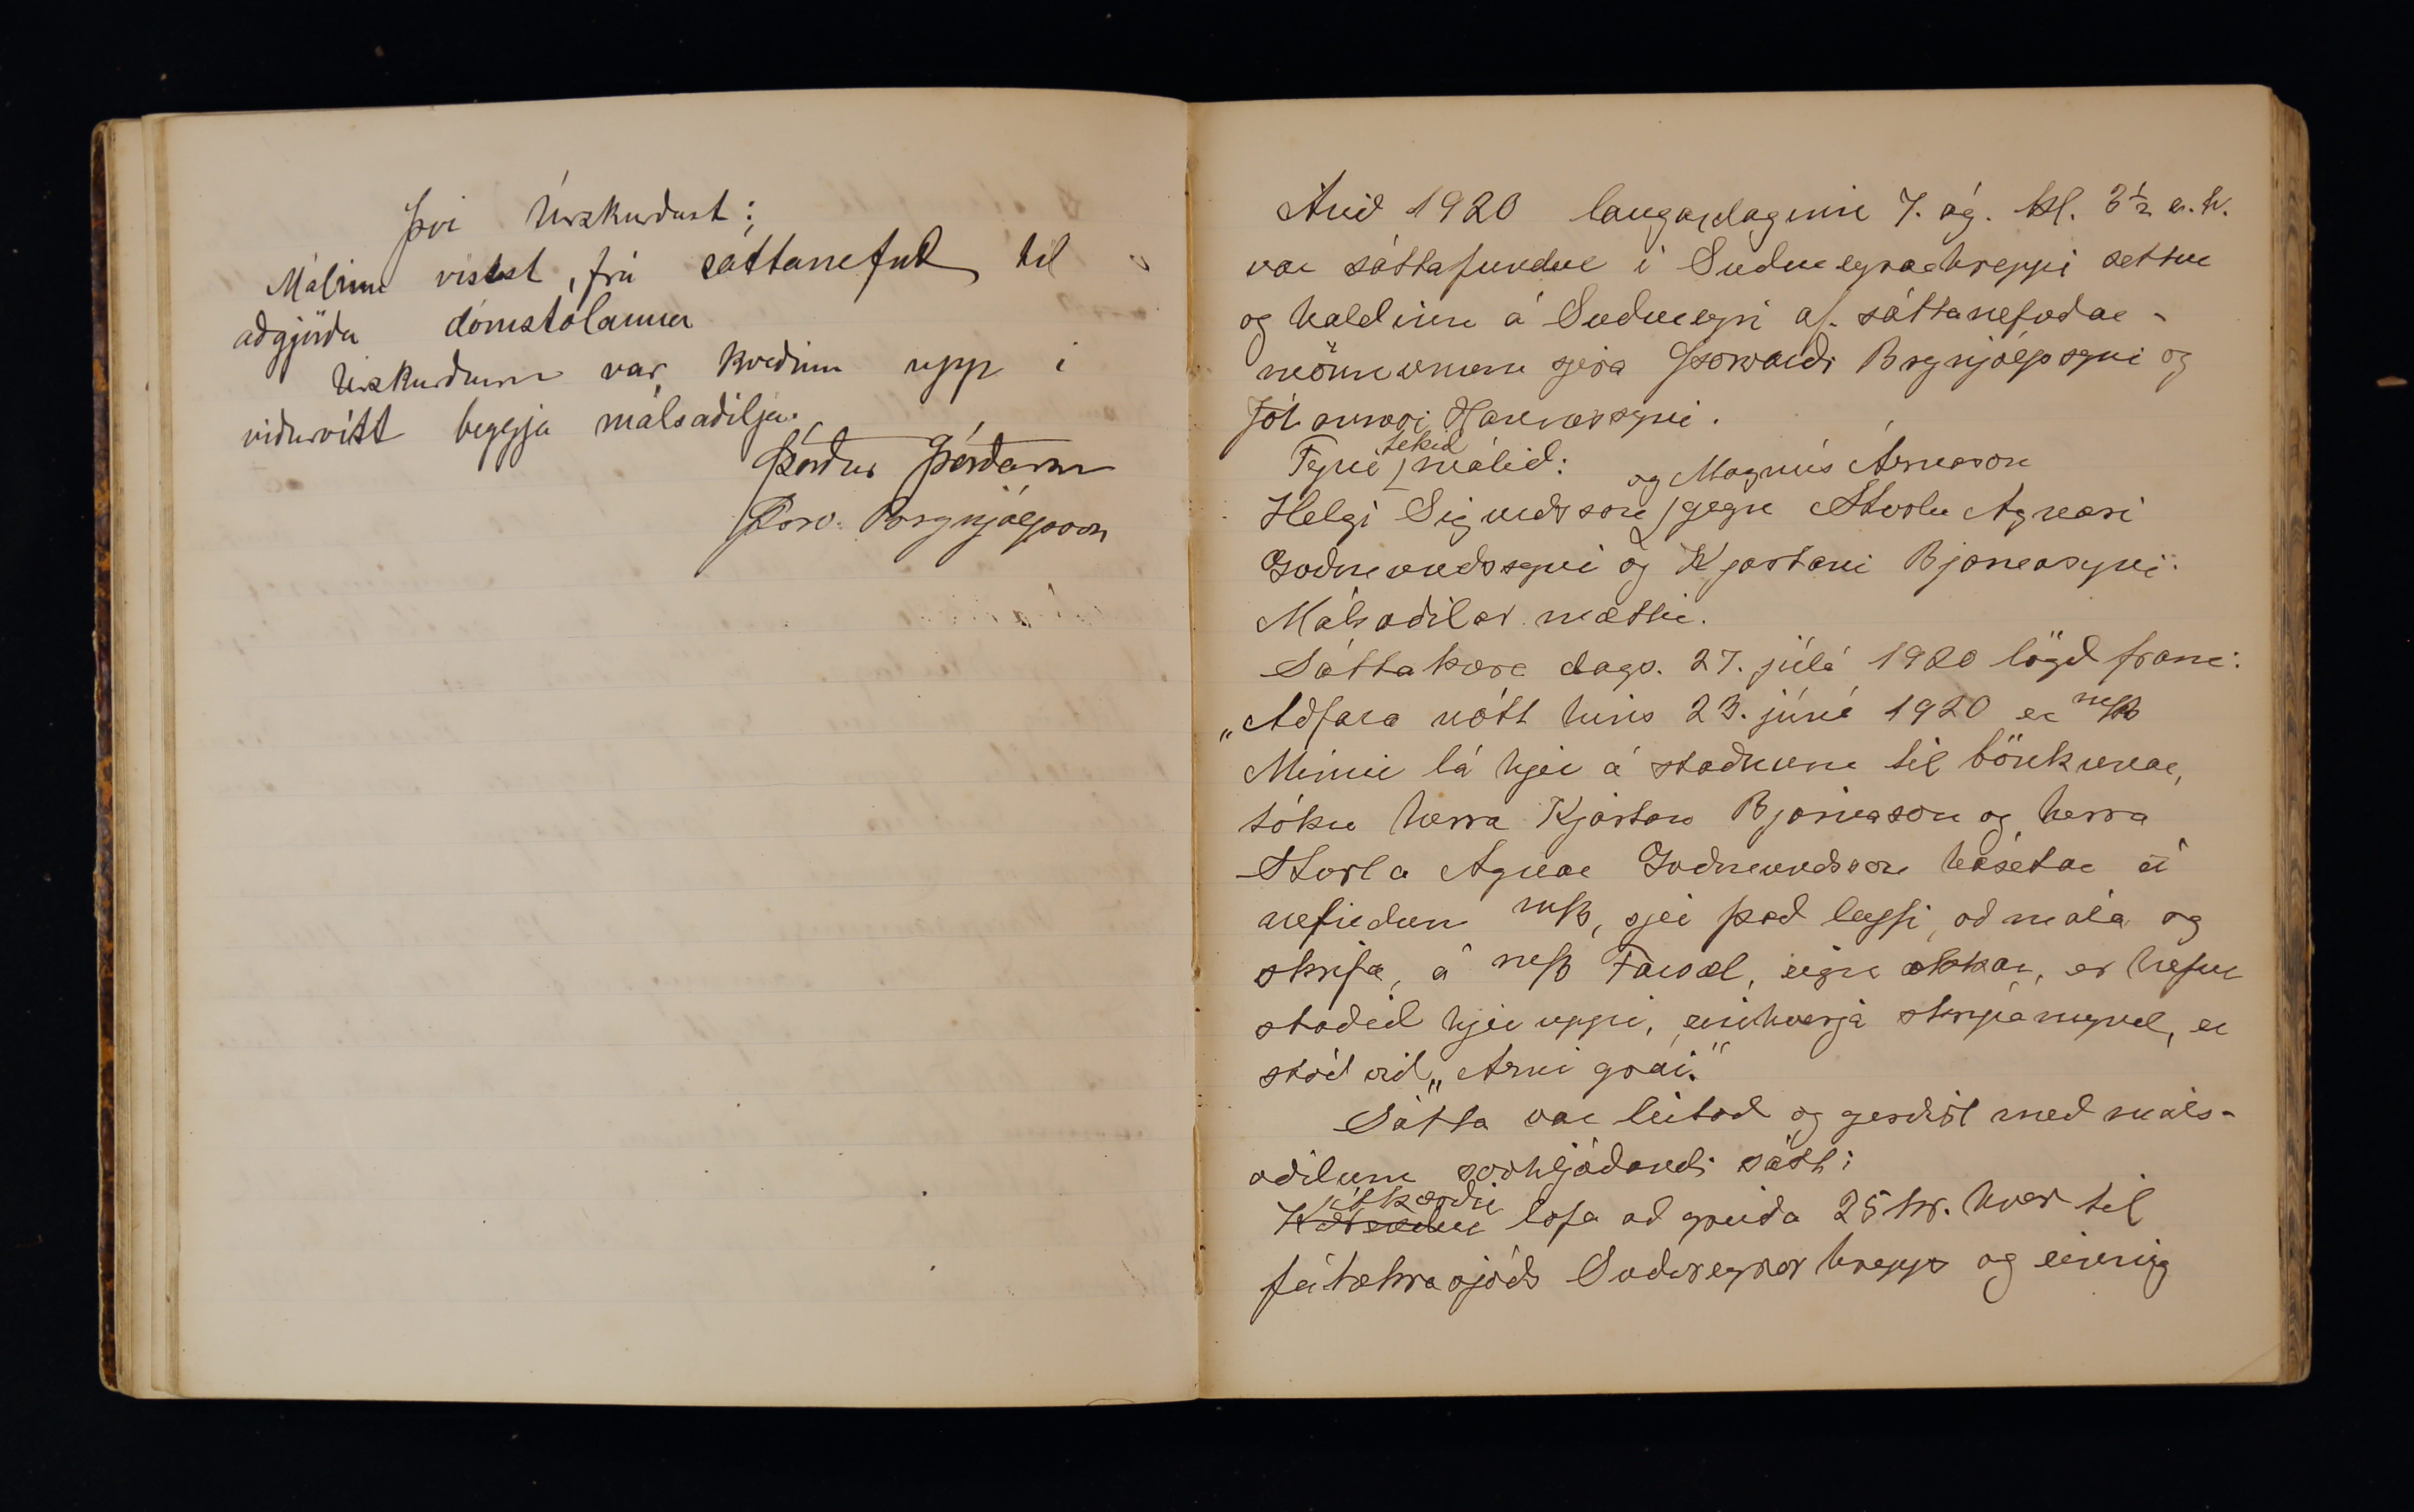 Því Úrskurðast:
Málinu vísast, frá sáttanefnd til
aðgjörða dómstólanna
Úrskurðurinn var kveðinn upp í
viðurvist beggja málsaðilja.
Þórður Þórðarson
Þorv. Brynjólfsson
Árið 1920 laugardaginn 7. ág. kl. 3½ e.h.
var sáttafundur í Suðureyrarhreppi settur
og haldinn á Suðureyri af sáttanefndar-
mönnunum sjera Þorvarði Brynjólfssyni og
Jóhannesi Hannessyni.
Fyrir tekið málið:
Helgi Sigurðsson og Magnús Árnason gegn Sturlu Agnari
Guðmundssyni og Kjartani Bjarnasyni.
Málsaðilar mættir.
Sáttakæra dags. 27. júlí 1920 lögð fram:
„Aðfara nótt hins 23. júní 1920 er m/k
Mímir lá hjer á staðnum til bönkunar,
tóku herra Kjartan Bjarnason og herra
Sturla Agnar Guðmundsson hásetar á
nefndum m/k, sjer það leyfi, að mála og
skrifa, á m/k Favoæl, eign okkar, er hefur
staðið hjer uppi, einhverja skrípamynd, er
stóð við „Árni grái."
Sátta var leitað og gerðist með máls-
aðilum svohljóðandi sátt:
Kærendur útkærðir lofa að greiða 25 kr. hver til
fátækrasjóðs Suðureyrarhrepps og einnig